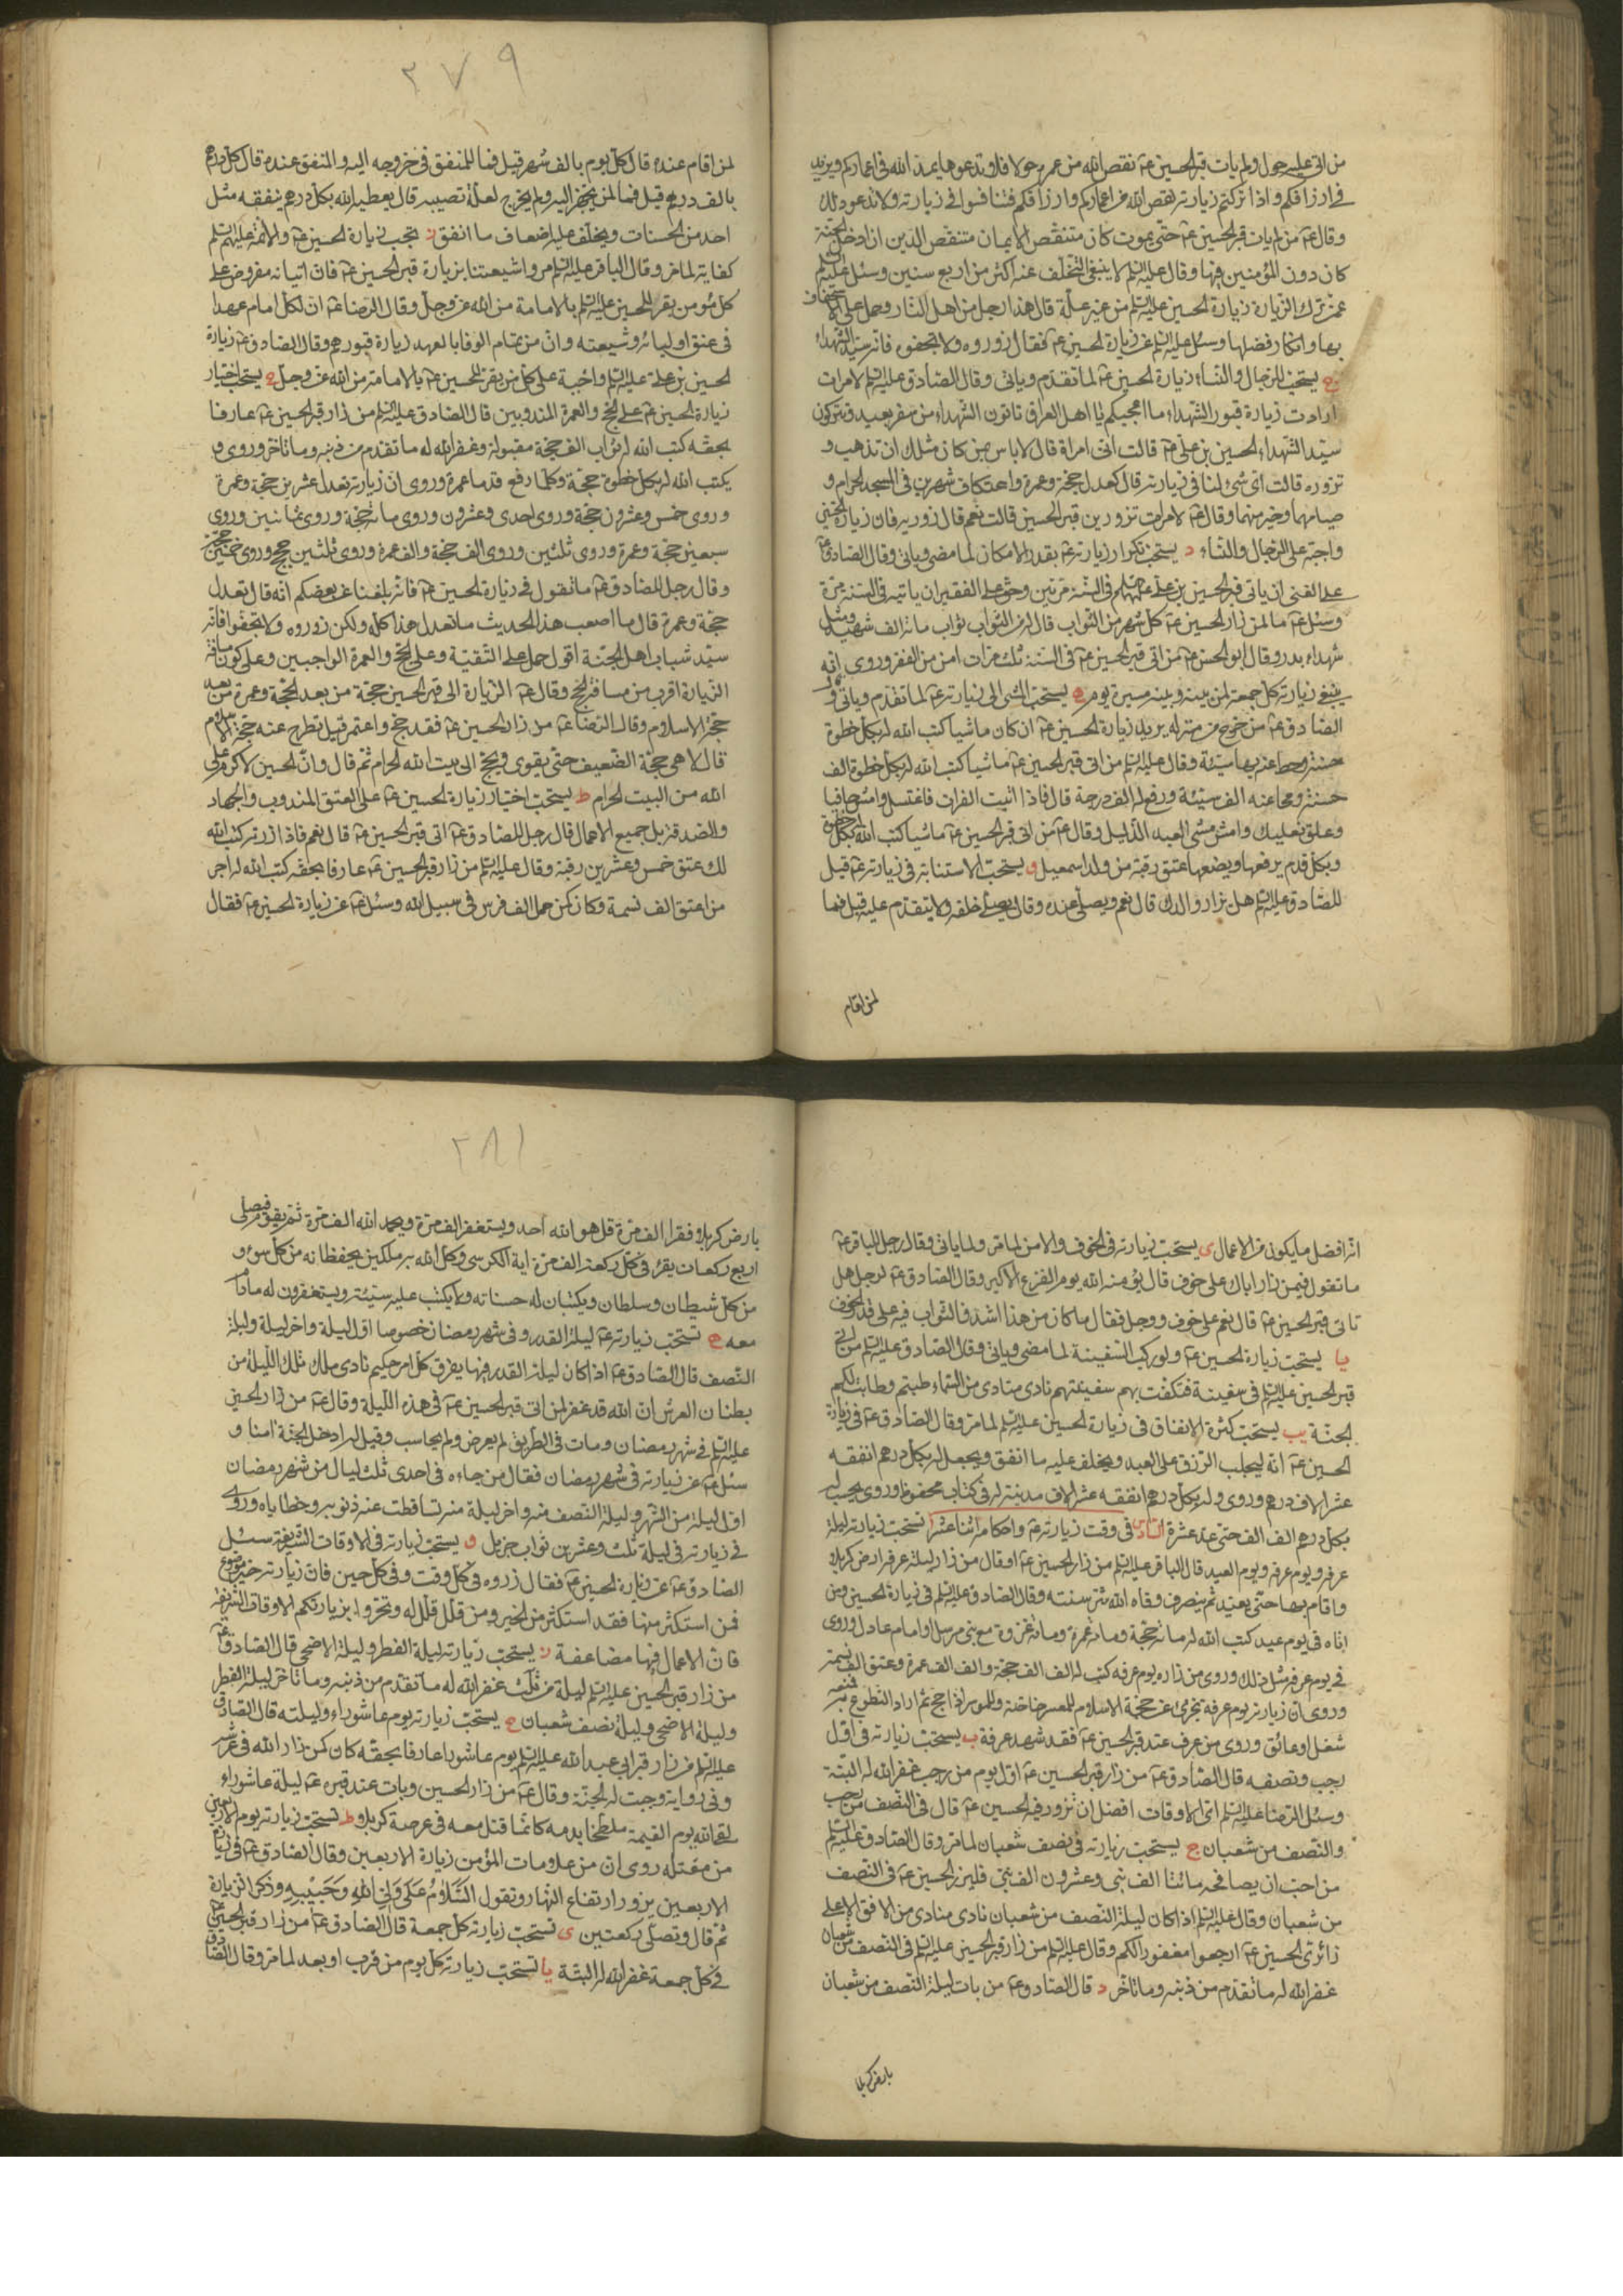 من اتى عليه حول ولم يات قبر الحسين عم نقص الله من عمره حولا فلا تدعوها يمد الله فى اعماركم ويزيد
فى ارزاقكم واذا تركتم زيارته نقص الله من اعماركم وارزاقكم فتنافسوا فى زيارته ولا تدعوا ذلك
وقال عم من لم يات قبر الحسين عم حتى يموت كان منتقص الايمان منتقص الدين ان ادخل الجنة
كان دون المؤمنين فيها وقال عليه السلم لا ينبغى التخلف عنه اكثر من اربع سنين وسئل عليه السلم
عمن ترك الزيارة زيارة الحسين عليه السلم من غير علة قال هذا رجل من اهل النار وحمل على الاستخفاف
بها وانكار فضلها وسئل عليه السلم عن زيارة الحسين عم فقال زوروه ولا تجفوه فانه سيد الشهداء
ج يستحب للرجال والنساء زيارة الحسين عم لما تقدم وياتى وقال الصادق عليه السلم لامراة
ارادت زيارة قبور الشهداء ما اعجبكم يا اهل العراق تاتون الشهداء من سفر بعيد وتتركون
سيد الشهداء الحسين بن على عم قالت انى امراة قال لا باس بمن كان مثلك ان تذهب و
تزوره قالت اى شئ لنا فى زيارته قال كعدل حجة وعمرة واعتكاف شهرين فى المسجد الحرام و
صيامهما وخير منهما وقال عم لامراة تزورين قبر الحسين قالت نعم قال زوريه فان زيارة الحسين
واجبة على الرجال والنساء د يستحب تكرار زيارته عم بقدر الامكان لما مضى وياتى وقال الصادق عم
على الغنى ان ياتى قبر الحسين بن على عليهما السلم فى السنة مرتين وحق على الفقير ان ياتيه فى السنة مرة
وسئل عم ما لمن زار الحسين عم كل شهر من الثواب قال له من الثواب ثواب مائة الف شهيد مثل
شهداء بدر وقال ابو الحسن عم من اتى قبر الحسين عم فى السنة ثلث مرات امن من الفقر وروى انه
ينبغى زيارته كل جمعة لمن بينه وبينه مسيرة يوم ه يستحب المشى الى زيارته عم لما تقدم وياتى وقال
الصادق عم من خرج من منزله يريد زيارة الحسين عم ان كان ماشيا كتب الله له بكل خطوة
حسنة وحط عنه بها سيئة وقال عليه السلم من اتى قبر الحسين عم ماشيا كتب الله له بكل خطوة الف
حسنة ومحا عنه الف سيئة ورفع له الف درجة قال فاذا اتيت الفرات فاغتسل وامش حافيا
وعلق نعليك وامش مشى العبد الذليل وقال عم من اتى قبر الحسين عم ماشيا كتب الله له بكل خطوة
وبكل قدم يرفعها ويضعها عتق رقبة من ولد اسمعيل و يستحب الاستنابة فى زيارته عم قيل
للصادق عليه السلم هل يزار والدك قال نعم ويصلى عنده وقال يصلى خلفه ولا يتقدم عليه قيل فما
لمن اقام
٢٧٩
لمن اقام عنده قال كل يوم بالف شهر قيل فما للمنفق فى خروجه اليه والمنفق عنده قال كل درهم
بالف درهم قيل فما لمن يجهز اليه ولم يخرج لعلة تصيبه قال يعطيه الله بكل درهم ينفقه مثل
احد من الحسنات ويخلف عليه اضعاف ما انفق ز تجب زيارة الحسين عم والائمة عليهم السلم
كفاية لما مر وقال الباقر عليه السلم مروا شيعتنا بزيارة قبر الحسين عم فان اتيانه مفروض على
كل مؤمن يقر للحسين عليه السلم بالامامة من الله عز وجل وقال الرضا عم ان لكل امام عهدا
فى عنق اوليائه وشيعته وان من تمام الوفا بالعهد زيارة قبورهم وقال الصادق عم زيارة
الحسين بن على عليه السلم واجبة على كل من يقر للحسين عم بالامامة من الله عز وجل ح يستحب اختيار
زيارة الحسين عم على الحج والعمرة المندوبين قال الصادق عليه السلم من زار قبر الحسين عم عارفا
بحقه كتب الله له ثواب الف حجة مقبولة وغفر الله له ما تقدم من ذنبه وما تاخر وروى و
يكتب الله له بكل خطوة حجة وكلما رفع قدما عمرة وروى ان زيارته تعدل عشرين حجة وعمرة
وروى خمس وعشرون حجة وروى احدى وعشرون وروى مائة حجة وروى ثمانين وروى
سبعين حجة وعمرة وروى ثلثين وروى الف حجة والف عمرة وروى ثلثين حجج وروى خمسين حجة
وقال رجل للصادق عم ما تقول فى زيارة الحسين عم فانه بلغنا عن بعضكم انه قال تعدل
حجة وعمرة قال ما اصعب هذا الحديث ما تعدل هذا كله ولكن زوروه ولا تجفوا فانه
سيد شباب اهل الجنة اقول حمل على التقية وعلى الحج والعمرة الواجبين وعلى كون مسافة
الزيارة اقرب من مسافة الحج وقال عم الزيارة الى قبر الحسين حجة من بعد الحجة وعمرة من بعد
حجة الاسلام وقال الرضا عم من زار الحسين عم فقد حج واعتمر قيل تطرح عنه حجة الاسلام
قال لا هى حجة الضعيف حتى يقوى ويحج الى بيت الله الحرام ثم قال وان الحسين لاكرم على
الله من البيت الحرام ط يستحب اختيار زيارة الحسين عم على العتق المندوب والجهاد
والصدقة بل جميع الاعمال قال رجل للصادق عم اتى قبر الحسين عم قال نعم فاذا زرته كتب الله
لك عتق خمس وعشرين رقبة وقال عليه السلم من زار قبر الحسين عم عارفا بحقه كتب الله له اجر
من اعتق الف نسمة وكان كمن حمل الف فرس فى سبيل الله وسئل عم عن زيارة الحسين عم فقال
انه افضل ما يكون من الاعمال ى يستحب زيارته فى الخوف والامن لما مر ولما ياتى وقال رجل للباقر عم
ما تقول فيمن زار اباك على خوف قال يؤمنه الله يوم الفزع الاكبر وقال الصادق عم لرجل هل
تاتى قبر الحسين عم قال نعم على خوف ووجل فقال ما كان من هذا اشد فالثواب فيه على قدر الخوف
يا يستحب زيارة الحسين عم ولو ركب السفينة لما مضى وياتى وقال الصادق عليه السلم من اتى
قبر الحسين عليه السلم فى سفينة فتكفت بهم سفينتهم نادى منادى من السماء طبتم وطابت لكم
الجنة يب يستحب كثرة الانفاق فى زيارة الحسين عليه السلم لما مر وقال الصادق عم فى زيارة
الحسين عم انه ليجلب الرزق على العبد ويخلف عليه ما انفق ويجعل له بكل درهم انفقه
عشر الاف درهم وروى وله بكل درهم انفقه عشر الاف مدينة له فى كتاب محفوظ وروى يحسب له
بكل درهم الف الف حتى عد عشرة السادس فى وقت زيارته عم واحكامه اثنا عشر ا تستحب زيارته ليلة
عرفه ويوم عرفه ويوم العيد قال الباقر عليه السلم من زار الحسين عم او قال من زار ليلة عرفه ارض كربلا
واقام بها حتى يعيد ثم ينصرف وقاه الله شر سنته وقال الصادق عليه السلم فى زيارة الحسين ومن
اتاه فى يوم عيد كتب الله له مائة حجة ومائة عمرة ومائة غزوة مع نبى مرسل او امام عادل وروى
فى يوم عرفه مثل ذلك وروى من زاره يوم عرفه كتب له الف الف حجة والف الف عمرة وعتق الف نسمة
وروى ان زيارته يوم عرفه تجزئ عن حجة الاسلام للمعسر خاصة وللموسر اذا حج ثم اراد التطوع فمنعه
شغل او عائق وروى من عرف عند قبر الحسين عم فقد شهد عرفة ب يستحب زيارته فى اول
رجب ونصفه قال الصادق عم من زار قبر الحسين عم اول يوم من رجب غفر الله له البتة
وسئل الرضا عليه السلم اى الاوقات افضل ان نزور فيه الحسين عم قال فى النصف من رجب
والنصف من شعبان ج يستحب زيارته فى نصف شعبان لما مر وقال الصادق عليه السلم
من احب ان يصافحه مائتا الف نبى وعشرون الف نبى فليزر الحسين عم فى النصف
من شعبان وقال عليه السلم اذا كان ليلة النصف من شعبان نادى منادى من الافق الاعلى
زائرى الحسين عم ارجعوا مغفورا لكم وقال عليه السلم من زار قبر الحسين عليه السلم فى النصف من شعبان
غفر الله له ما تقدم من ذنبه وما تاخر د قال الصادق عم من بات ليلة النصف من شعبان
بارض كربلا
٢٨١
بارض كربلا وفقرا الف مرة قل هو الله احد ويستغفر الف مرة ويحمد الله الف مرة ثم يقوم فيصلى
اربع ركعات يقرء فى كل ركعة الف مرة اية الكرسى وكل الله به ملكين يحفظانه من كل سوء و
من كل شيطان وسلطان ويكتبان له حسناته ولا يكتب عليه سيئة ويستغفرون له ماداما
معه ه تستحب زيارته عم ليلة القدر وفى شهر رمضان خصوصا اول ليلة واخر ليلة وليلة
النصف قال الصادق عم اذا كان ليلة القدر فيها يفرق كل امر حكيم نادى ملك تلك الليلة من
بطنان العرش ان الله قد غفر لمن اتى قبر الحسين عم فى هذه الليلة وقال عم من زار الحسين
عليه السلم فى شهر رمضان ومات فى الطريق لم يعرض ولم يحاسب وقيل له ادخل الجنة امنا و
سئل عم عن زيارته فى شهر رمضان فقال من جاءه فى احدى ثلث ليال من شهر رمضان
اول ليلة من الشهر وليلة النصف منه واخر ليلة منه تساقطت عنه ذنوبه وخطاياه وروى
فى زيارته فى ليلة ثلث وعشرين ثواب جزيل و يستحب زيارته فى الاوقات الشريفة سئل
الصادق عم عن زيارة الحسين عم فقال زروه فى كل وقت وفى كل حين فان زيارته خير موضوع
فمن استكثر منها فقد استكثر من الخير ومن قلل قلل له وتحروا بزيارتكم الاوقات الشريفة
فان الاعمال فيها مضاعفة ز يستحب زيارته ليلة الفطر وليلة الاضحى قال الصادق عم
من زار قبر الحسين عليه السلم ليلة من ثلث غفر الله له ما تقدم من ذنبه وما تاخر ليلة الفطر
وليلة الاضحى وليلة نصف شعبان ح يستحب زيارته يوم عاشوراء وليلته قال الصادق
عليه السلم من زار قبر ابى عبد الله عليه السلم يوم عاشورا عارفا بحقه كان كمن زار الله فى عرشه
وفى رواية وجبت له الجنة وقال عم من زار الحسين وبات عند قبره عم ليلة عاشوراء
لقى الله يوم القيمة ملطخا بدمه كانما قتل معه فى عرصة كربلا ط تستحب زيارته يوم الاربعين
من مقتله روى ان من علامات المؤمن زيارة الاربعين وقال الصادق عم فى زيارة
الاربعين يزور ارتفاع النهار وتقول السلام على ولى الله وحبيبه وذكر الزيارة
ثم قال وتصلى ركعتين ى تستحب زيارته كل جمعة قال الصادق عم من زار قبر الحسين عم
فى كل جمعة غفر الله له البتة يا تستحب زيارته كل يوم من قرب او بعد لما مر وقال الصادق